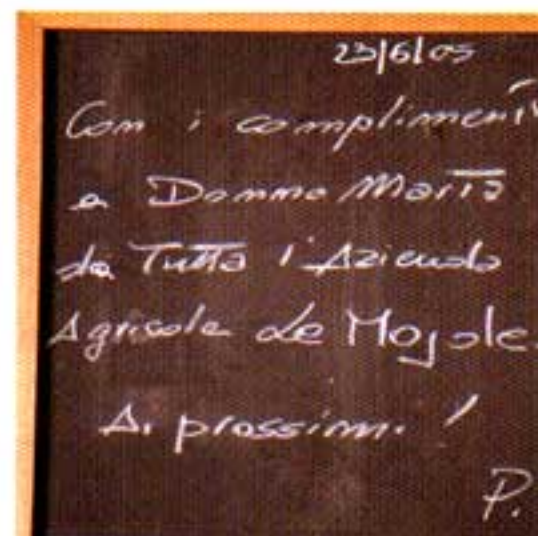 23/6/05
Con i complimenti
a Donna Maria
da Tutta l'Azienda
Agricola Le Mojole.
Ai prossimi!
P.